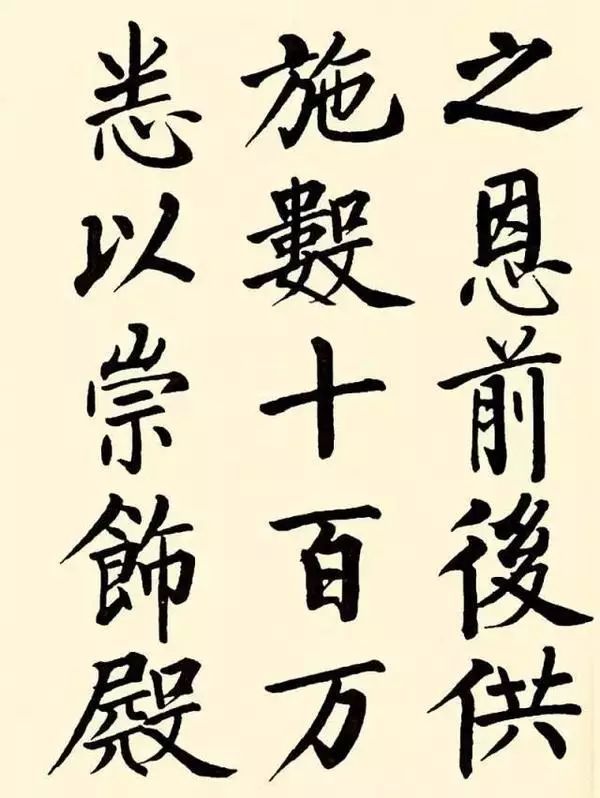 之恩前後供
施數十百万
悉以崇飾殿